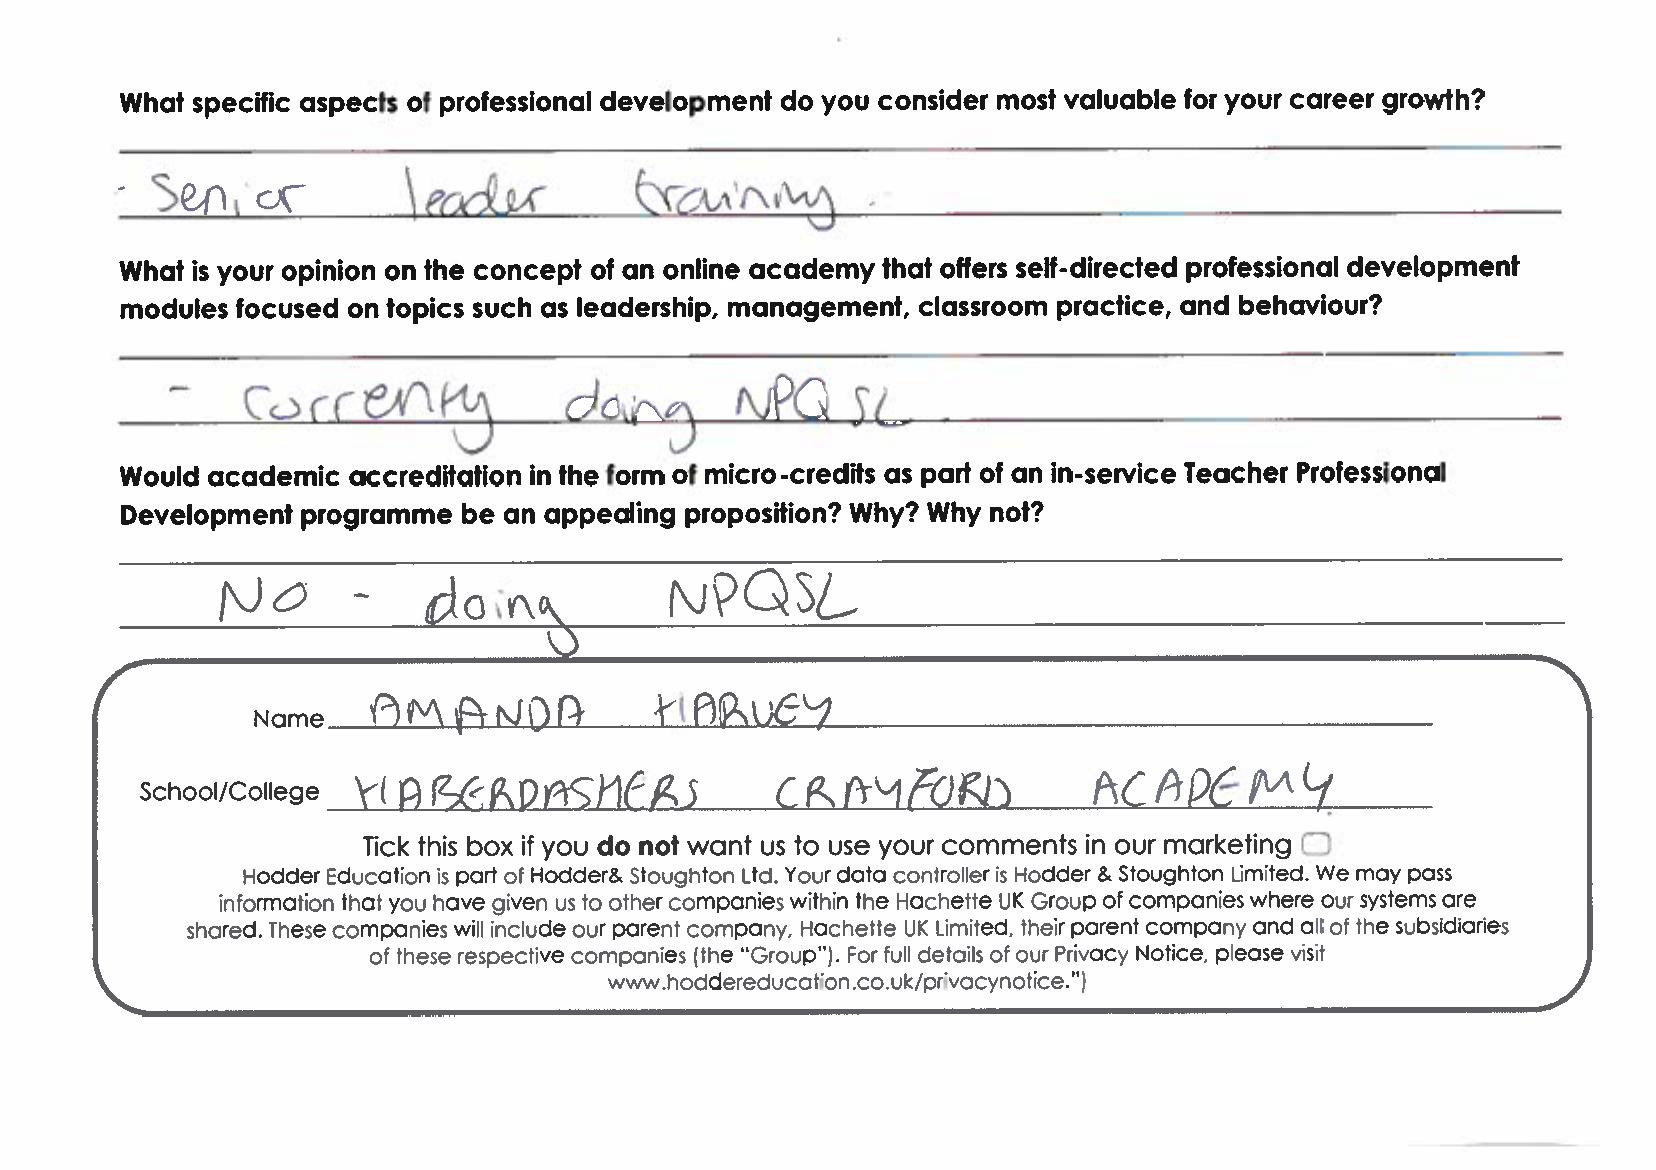 What specific aspects of professional development do you consider most valuable for your career growth?
- Senior leader training.
What is your opinion on the concept of an online academy that offers self-directed professional development
modules focused on topics such as leadership, management, classroom practice, and behaviour?
- Currenty doing NPQSL.
Would academic accreditation in the form of micro-credits as part of an in-service Teacher Professional
Development programme be an appealing proposition? Why? Why not?
No - doing NPQSL
Name AMANDA HARVEY
School/College HABERDASHERS CRAYFORD ACADEMY
Tick this box if you do not want us to use your comments in our marketing
Hodder Education is part of Hodder& Stoughton Ltd. Your data controller is Hodder & Stoughton Limited. We may pass
information that you have given us to other companies within the Hachette UK Group of companies where our systems are
shared. These companies will include our parent company, Hachette UK Limited, their parent company and all of the subsidiaries
of these respective companies (the "Group"). For full details of our Privacy Notice, please visit
www.hoddereducation.co.uk/privacynotice.")